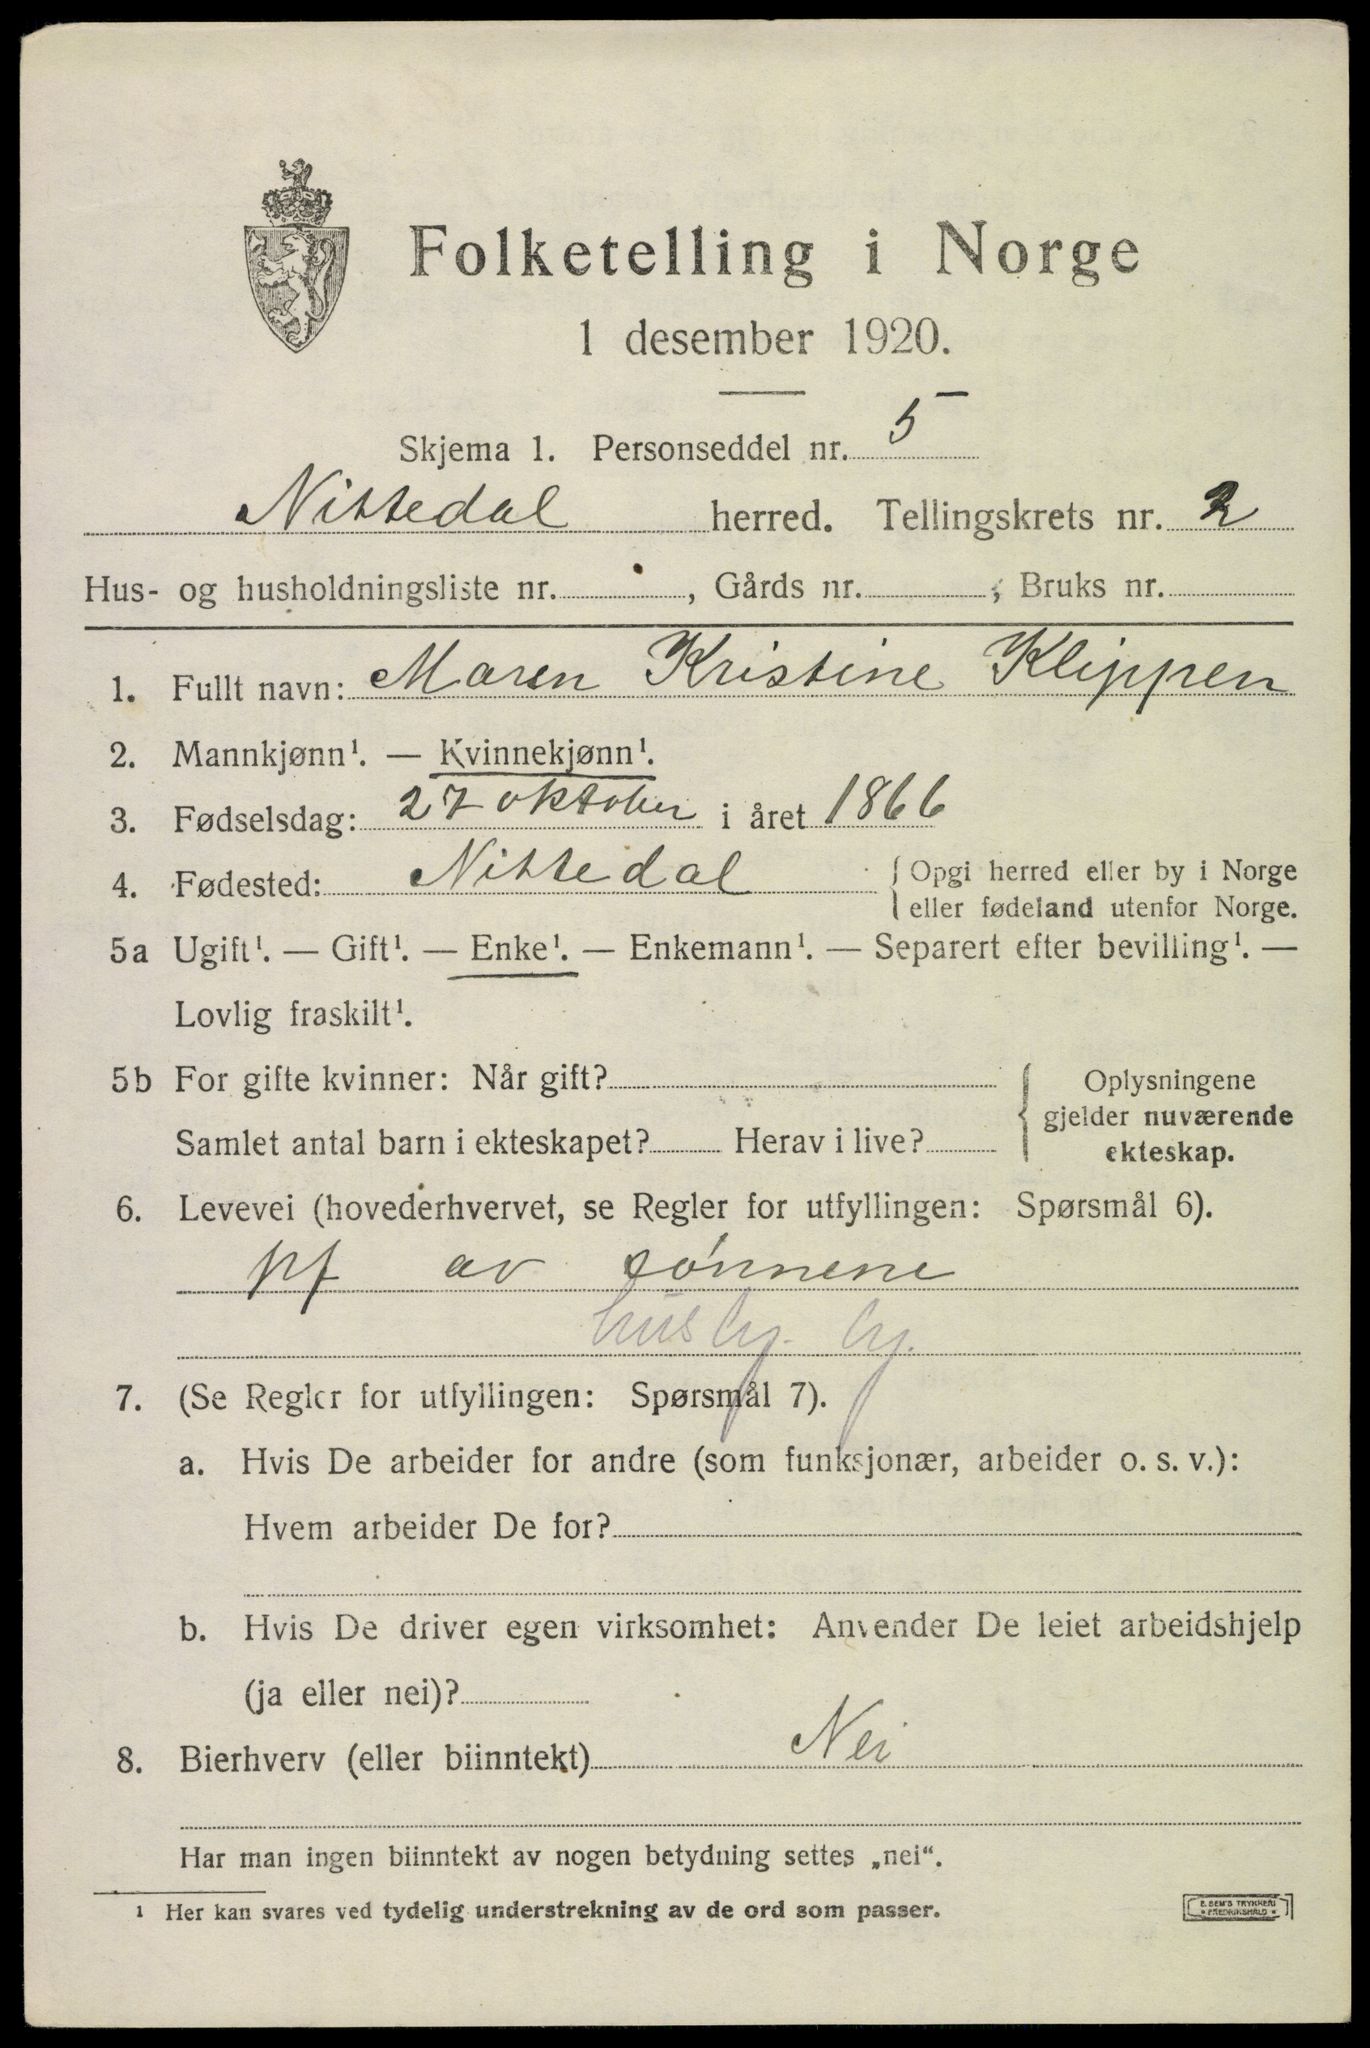 Folketelling i Norge
1 desember 1920.
Skjema 1. Personseddel nr. 5
Nittedal herred. Tellingskrets nr. 2
Hus- og husholdningsliste nr. , Gårds nr. , Bruks nr.
1. Fullt navn: Maren Kristine Klippen
2. Mannkjønn¹. — Kvinnekjønn¹.
3. Fødselsdag: 27 oktober i året 1866
4. Fødested: Nittedal { Opgi herred eller by i Norge
eller fødeland utenfor Norge.
5a Ugift¹. — Gift¹. — Enke¹. — Enkemann¹. — Separert efter bevilling¹. —
Lovlig fraskilt¹.
5b For gifte kvinner: Når gift? { Oplysningene
gjelder nuværende
Samlet antal barn i ekteskapet? Herav i live?
ekteskap.
6. Levevei (hovederhvervet, se Regler for utfyllingen: Spørsmål 6).
pf av sønnene
7. (Se Regler for utfyllingen: Spørsmål 7).
a. Hvis De arbeider for andre (som funksjonær, arbeider o. s. v.):
Hvem arbeider De for?
b. Hvis De driver egen virksomhet: Anvender De leiet arbeidshjelp
(ja eller nei)?
8. Bierhverv (eller biinntekt) Nei
Har man ingen biinntekt av nogen betydning settes „nei“.
¹ Her kan svares ved tydelig understrekning av de ord som passer.
E. SEM'S TRYKKERI
FREDRIKSHALD